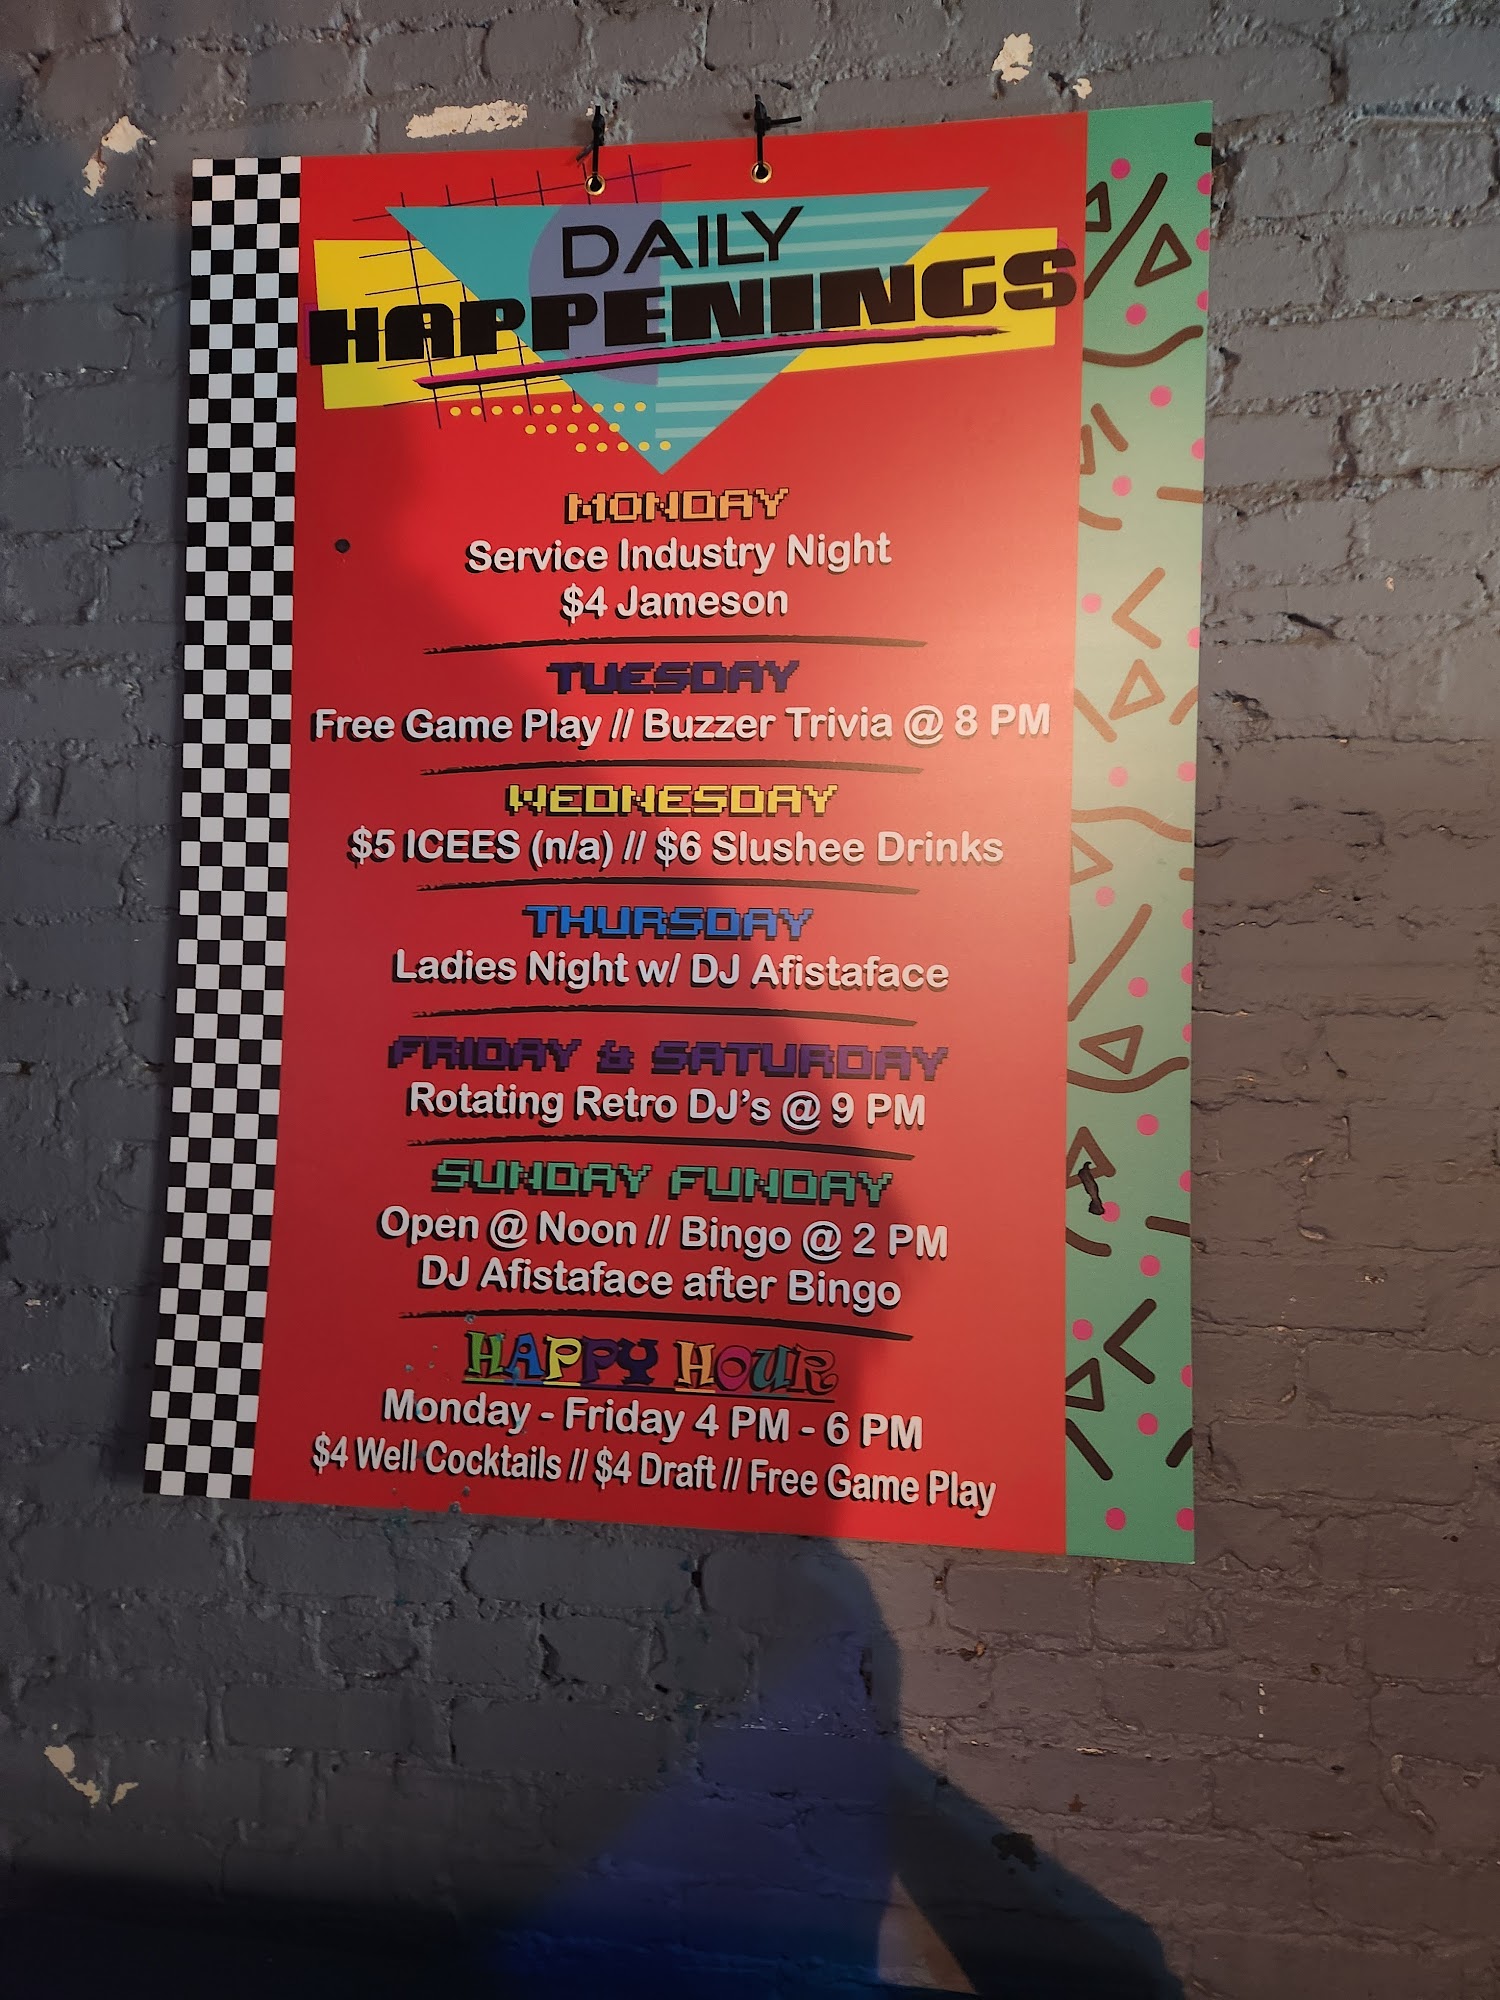 DAILY
HAPPENINGS
MONDAY
Service Industry Night
$4 Jameson
TUESDAY
Free Game Play // Buzzer Trivia @ 8 PM
WEDNESDAY
$5 ICEES (n/a) // $6 Slushee Drinks
THURSDAY
Ladies Night w/ DJ Afistaface
FRIDAY & SATURDAY
Rotating Retro DJ's @ 9 PM
SUNDAY FUNDAY
Open @ Noon // Bingo @ 2 PM
DJ Afistaface after Bingo
HAPPY HOUR
Monday - Friday 4 PM - 6 PM
$4 Well Cocktails // $4 Draft // Free Game Play